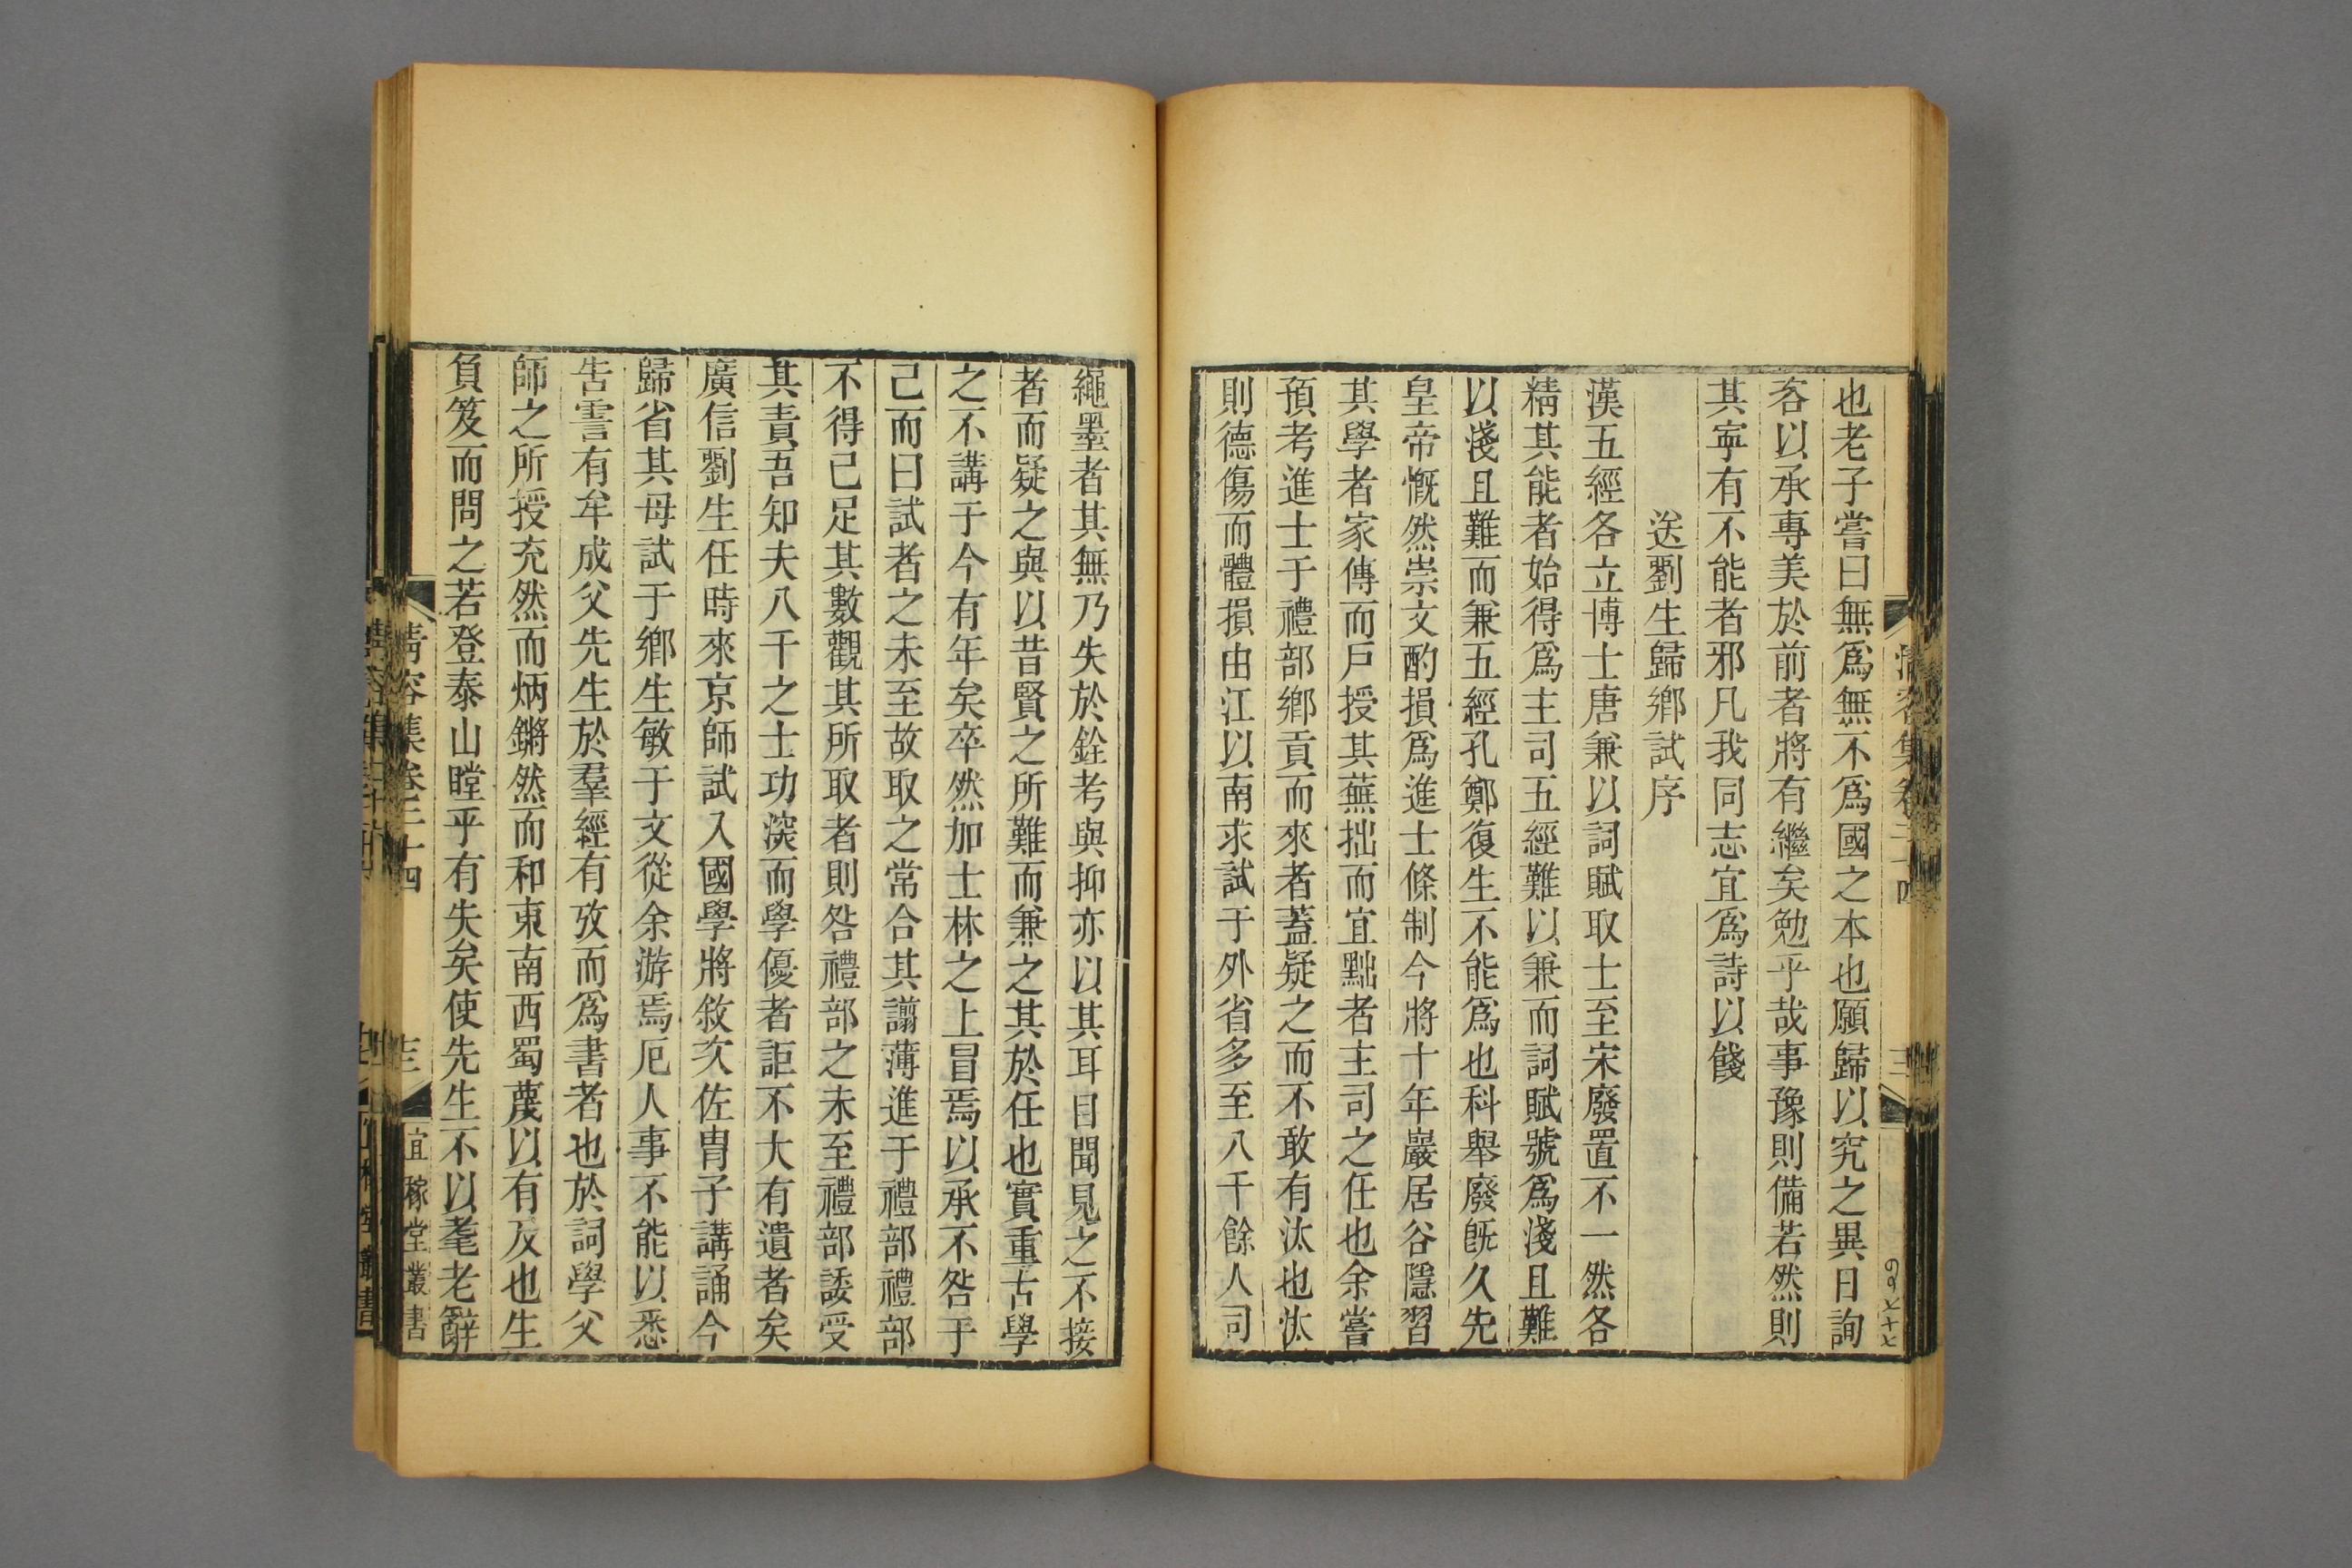 也老子嘗曰無爲無不爲國之本也願歸以究之異日詢
各以承專美於前者將有繼矣勉乎哉事豫則備若然則
其寜有不能者邪凡我同志宜爲詩以餞
送劉生歸鄉試序
漢五經各立博士唐兼以詞賦取士至宋廢置不一然各
精其能者始得爲主司五經難以兼而詞賦號爲淺且難
以淺且難而兼五經孔鄭復生不能爲也科舉廢既久先
皇帝慨然崇文酌損爲進士條制今將十年巖居谷隱習
其學者家傳而戶授其蕪拙而宜黜者主司之任也余嘗
預考進士于禮部鄉貢而來者蓋疑之而不敢有汰也汰
則德傷而體損由江以南求試于外省多至八千餘人司
繩墨者其無乃失於銓考與抑亦以其耳目聞見之不接
者而疑之與以昔賢之所難而兼之其於任也實重古學
之不講于今有年矣卒然加士林之上冒焉以承不咎于
己而曰試者之未至故取之常合其譾薄進于禮部禮部
不得已足其數觀其所取者則咎禮部之未至禮部諉受
其責吾知夫八千之士功深而學優者詎不大有遺者矣
廣信劉生任時來京師試入國學將敘次佐胄子講誦今
歸省其母試于鄉生敏于文從余游焉厄人事不能以悉
吿霅有牟成父先生於羣經有攷而爲書者也於詞學父
師之所授充然而炳鏘然而和東南西蜀蔑以有友也生
負笈而問之若登泰山瞠乎有失矣使先生不以耄老辭
清容集卷二十四
三
宜稼堂叢書